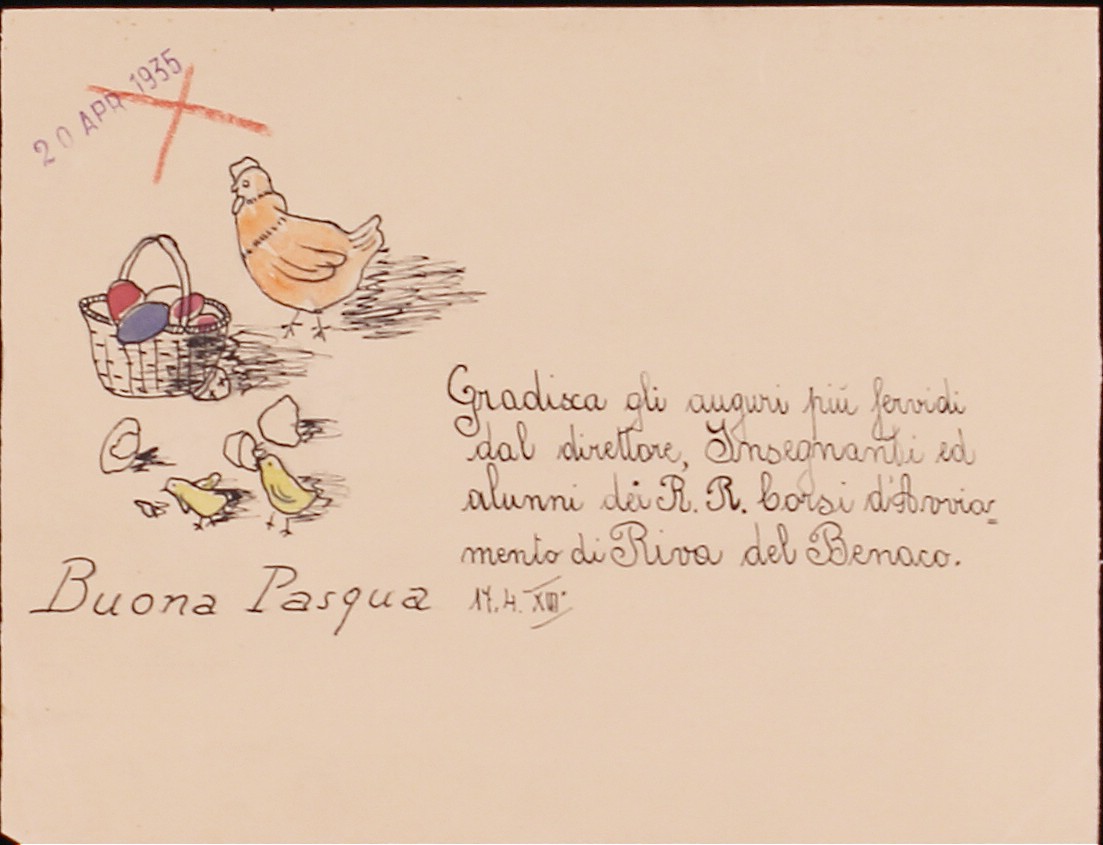 20 APR 1935
Gradisca gli auguri più fervidi
dal direttore, Insegnanti ed
alunni dei R. R. Corsi d'Avvia=
mento di Riva del Benaco.
Buona Pasqua
17.4.XIII°